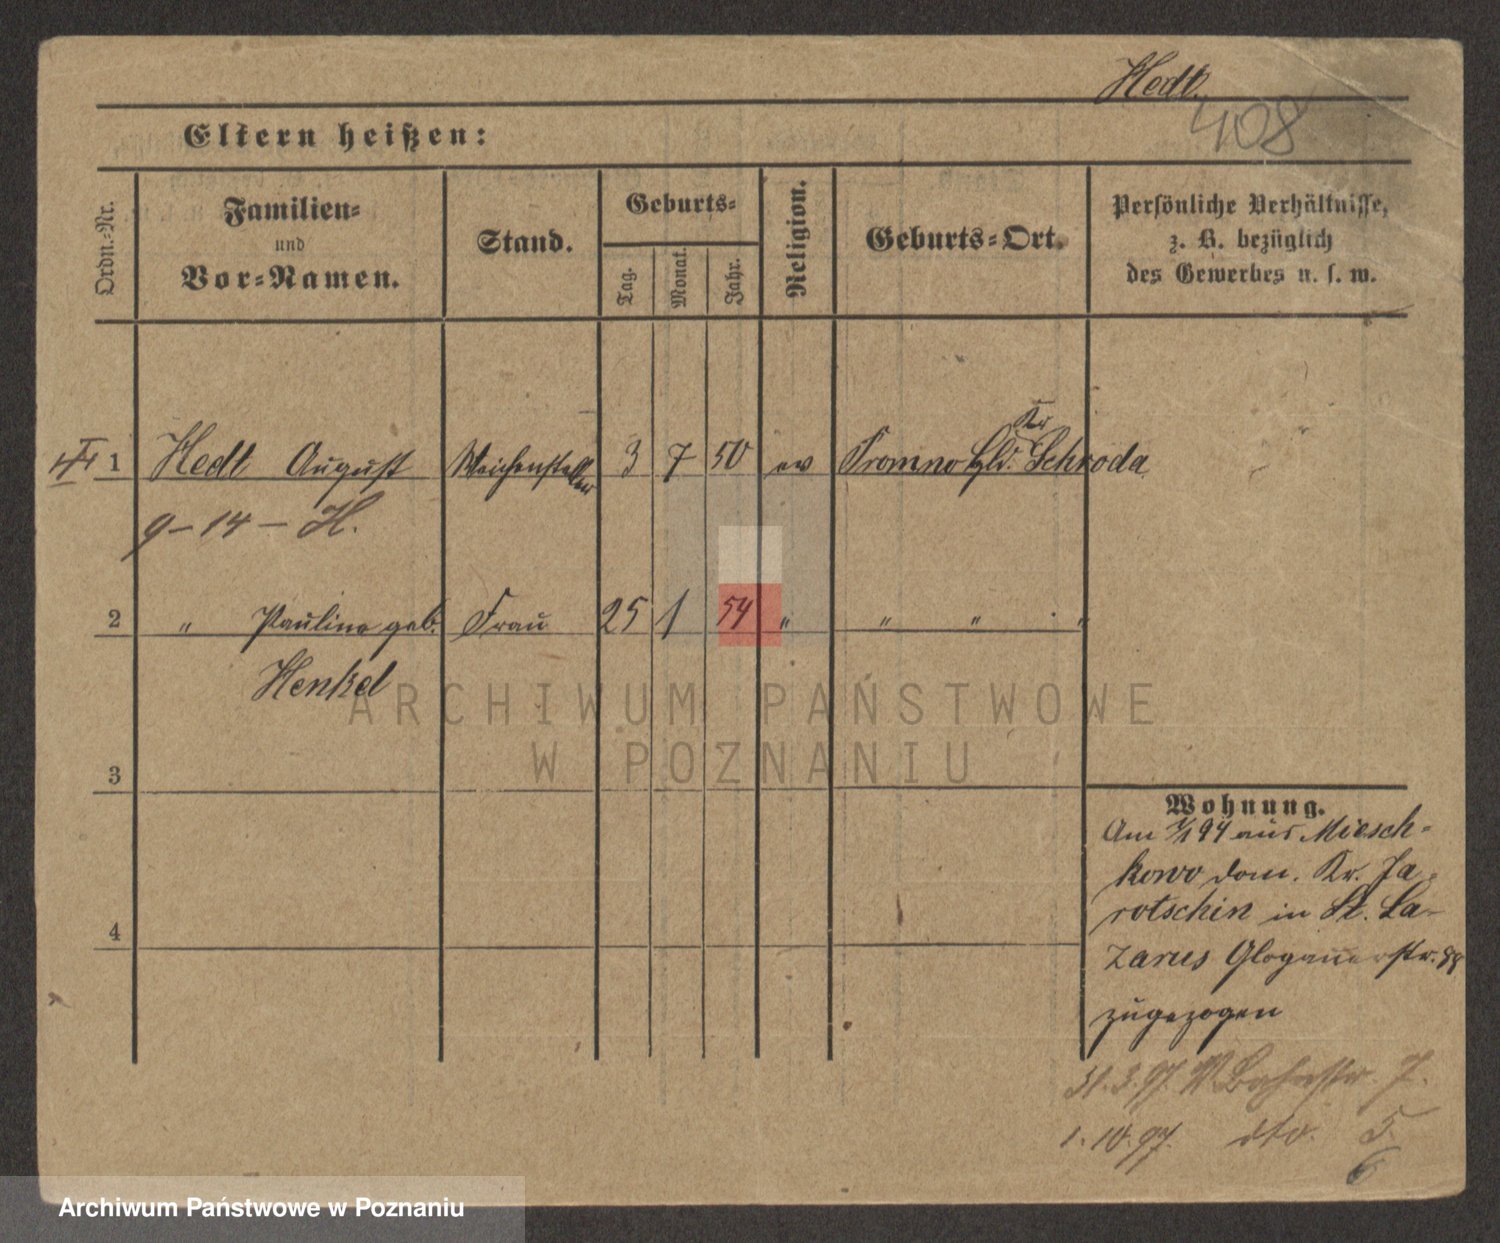 Hedt.
408
Eltern heißen:
Ordn.-Nr.
Familien-
und
Vor-Namen.
Stand.
Geburts-
Tag.
Monat.
Jahr.
Religion.
Geburts-Ort.
Persönliche Verhältnisse,
z. B. bezüglich
des Gewerbes u. s. w.
1 Hedt August Weichensteller 3 7 50 ev Promno Hld. Kr Schroda
9-14-H.
2 " Pauline geb. Frau 25 1 54 " " " "
Henkel
ARCHIWUM PAŃSTWOWE
W POZNANIU
3
4
Wohnung.
Am 94 aus Miesch-
kowo dom. Kr. Ja-
rotschin in St. La-
zarus Glogauerstr.
zugezogen
31.3.97. 7.
1.10.97. dto. 5.
6
Archiwum Państwowe w Poznaniu